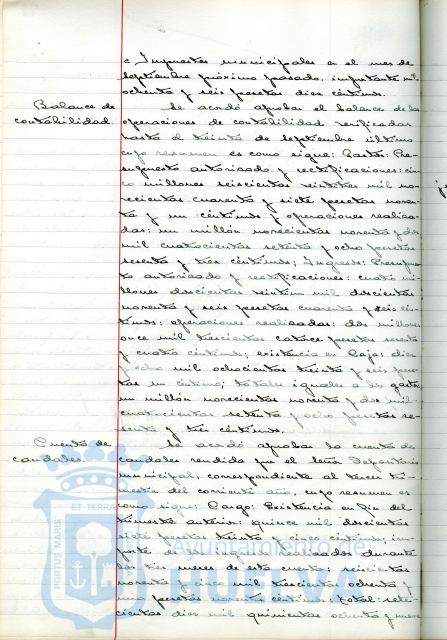 e Impuestos municipales en el mes de
septiembre próximo pasado, importante mil
ochenta y seis pesetas diez céntimos.
Balance de
contabilidad.
Se acordó aprobar el balance de las
operaciones de contabilidad verificadas
hasta el treinta de septiembre último
cuyo resumen es como sigue: Gastos: Pre-
supuesto autorizado y rectificaciones: cin-
co millones seiscientas veintitres mil no-
vecientas cuarenta y siete pesetas noven-
ta y un céntimos y operaciones realiza-
das: un millón novecientas noventa y dos
mil cuatrocientas setenta y ocho pesetas
sesenta y tres céntimos; Ingresos: Presupues-
to autorizado y rectificaciones: cuatro mi-
llones doscientas veintiun mil doscientas
noventa y seis pesetas cuarenta y seis cén-
timos: operaciones realizadas: dos millones
once mil trescientas catorce pesetas sesenta
y cuatro céntimos; existencia en Caja: diez
y ocho mil ochocientas treinta y seis pese-
tas un céntimo; totales iguales a los gastos
un millón novecientas noventa y dos mil
cuatrocientas setenta y ocho pesetas se-
senta y tres céntimos.
Cuenta de
caudales.
Se acordó aprobar la cuenta de
caudales rendida por el Señor Depositario
municipal, correspondiente al tercer tri-
mestre del corriente año, cuyo resumen es
como sigue: Cargo: Existencia en fin del
trimestre anterior: quince mil doscientas
siete pesetas treinta y cinco céntimos; im-
porte ingresos realizados durante
los tres meses de esta cuenta; seiscientas
noventa y cinco mil trescientas ochenta y
una pesetas noventa céntimos: total: sete-
cientas diez mil quinientas ochenta y nueve
Ayuntamiento de
HUELVA
PORTUS MARIS
ET TERRAE